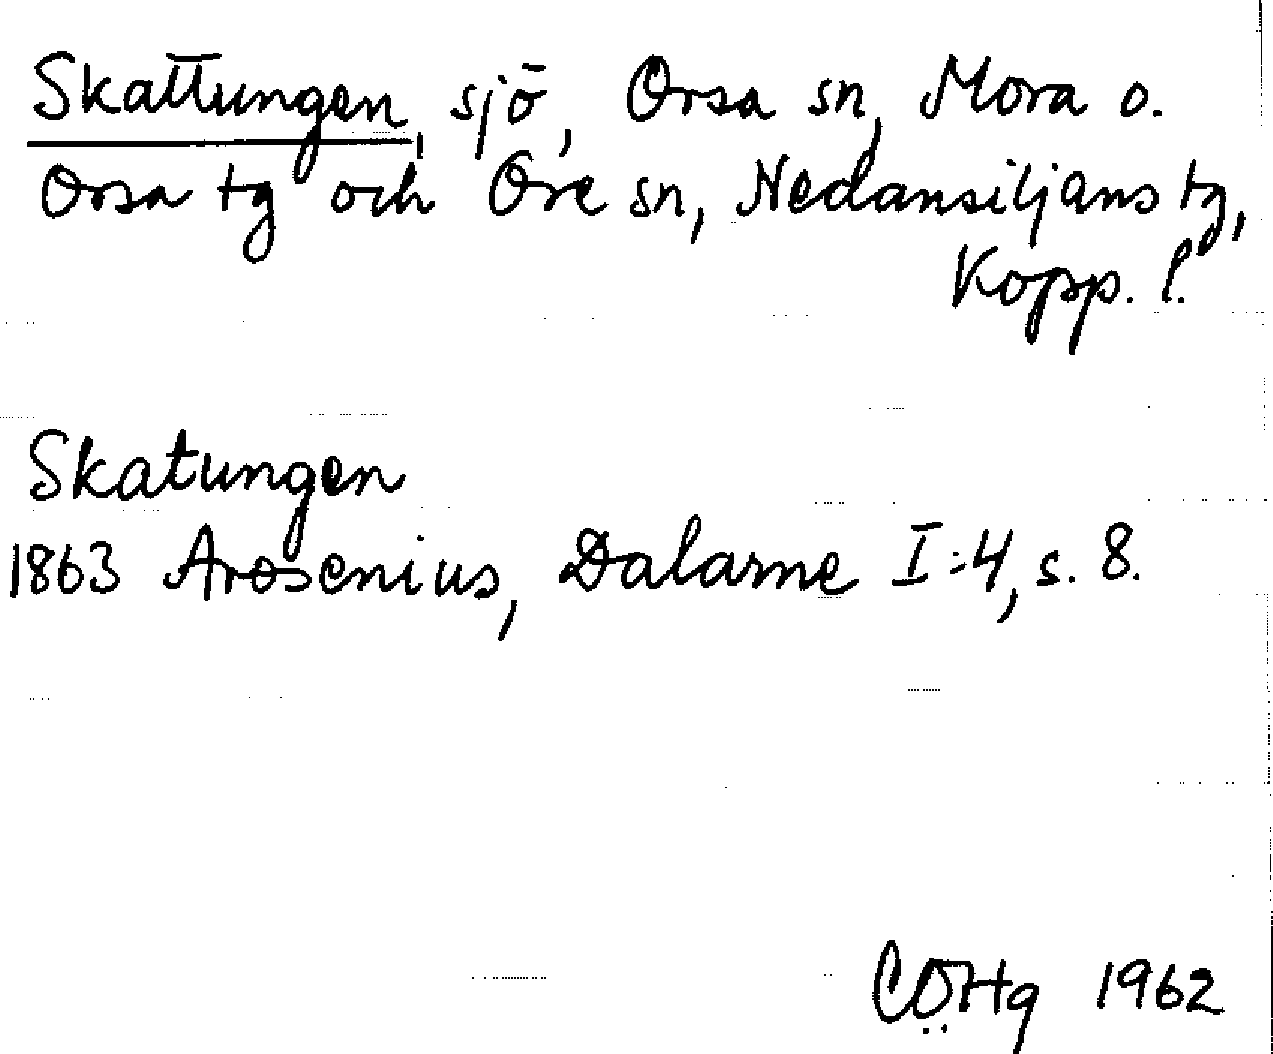 Skattungen, sjö, Orsa sn, Mora o.
Orsa tg och Ore sn, Nedansiljans tg,
Kopp. l.
Skatungen
1863 Arosenius, Dalarne I:4, s. 8.
1962